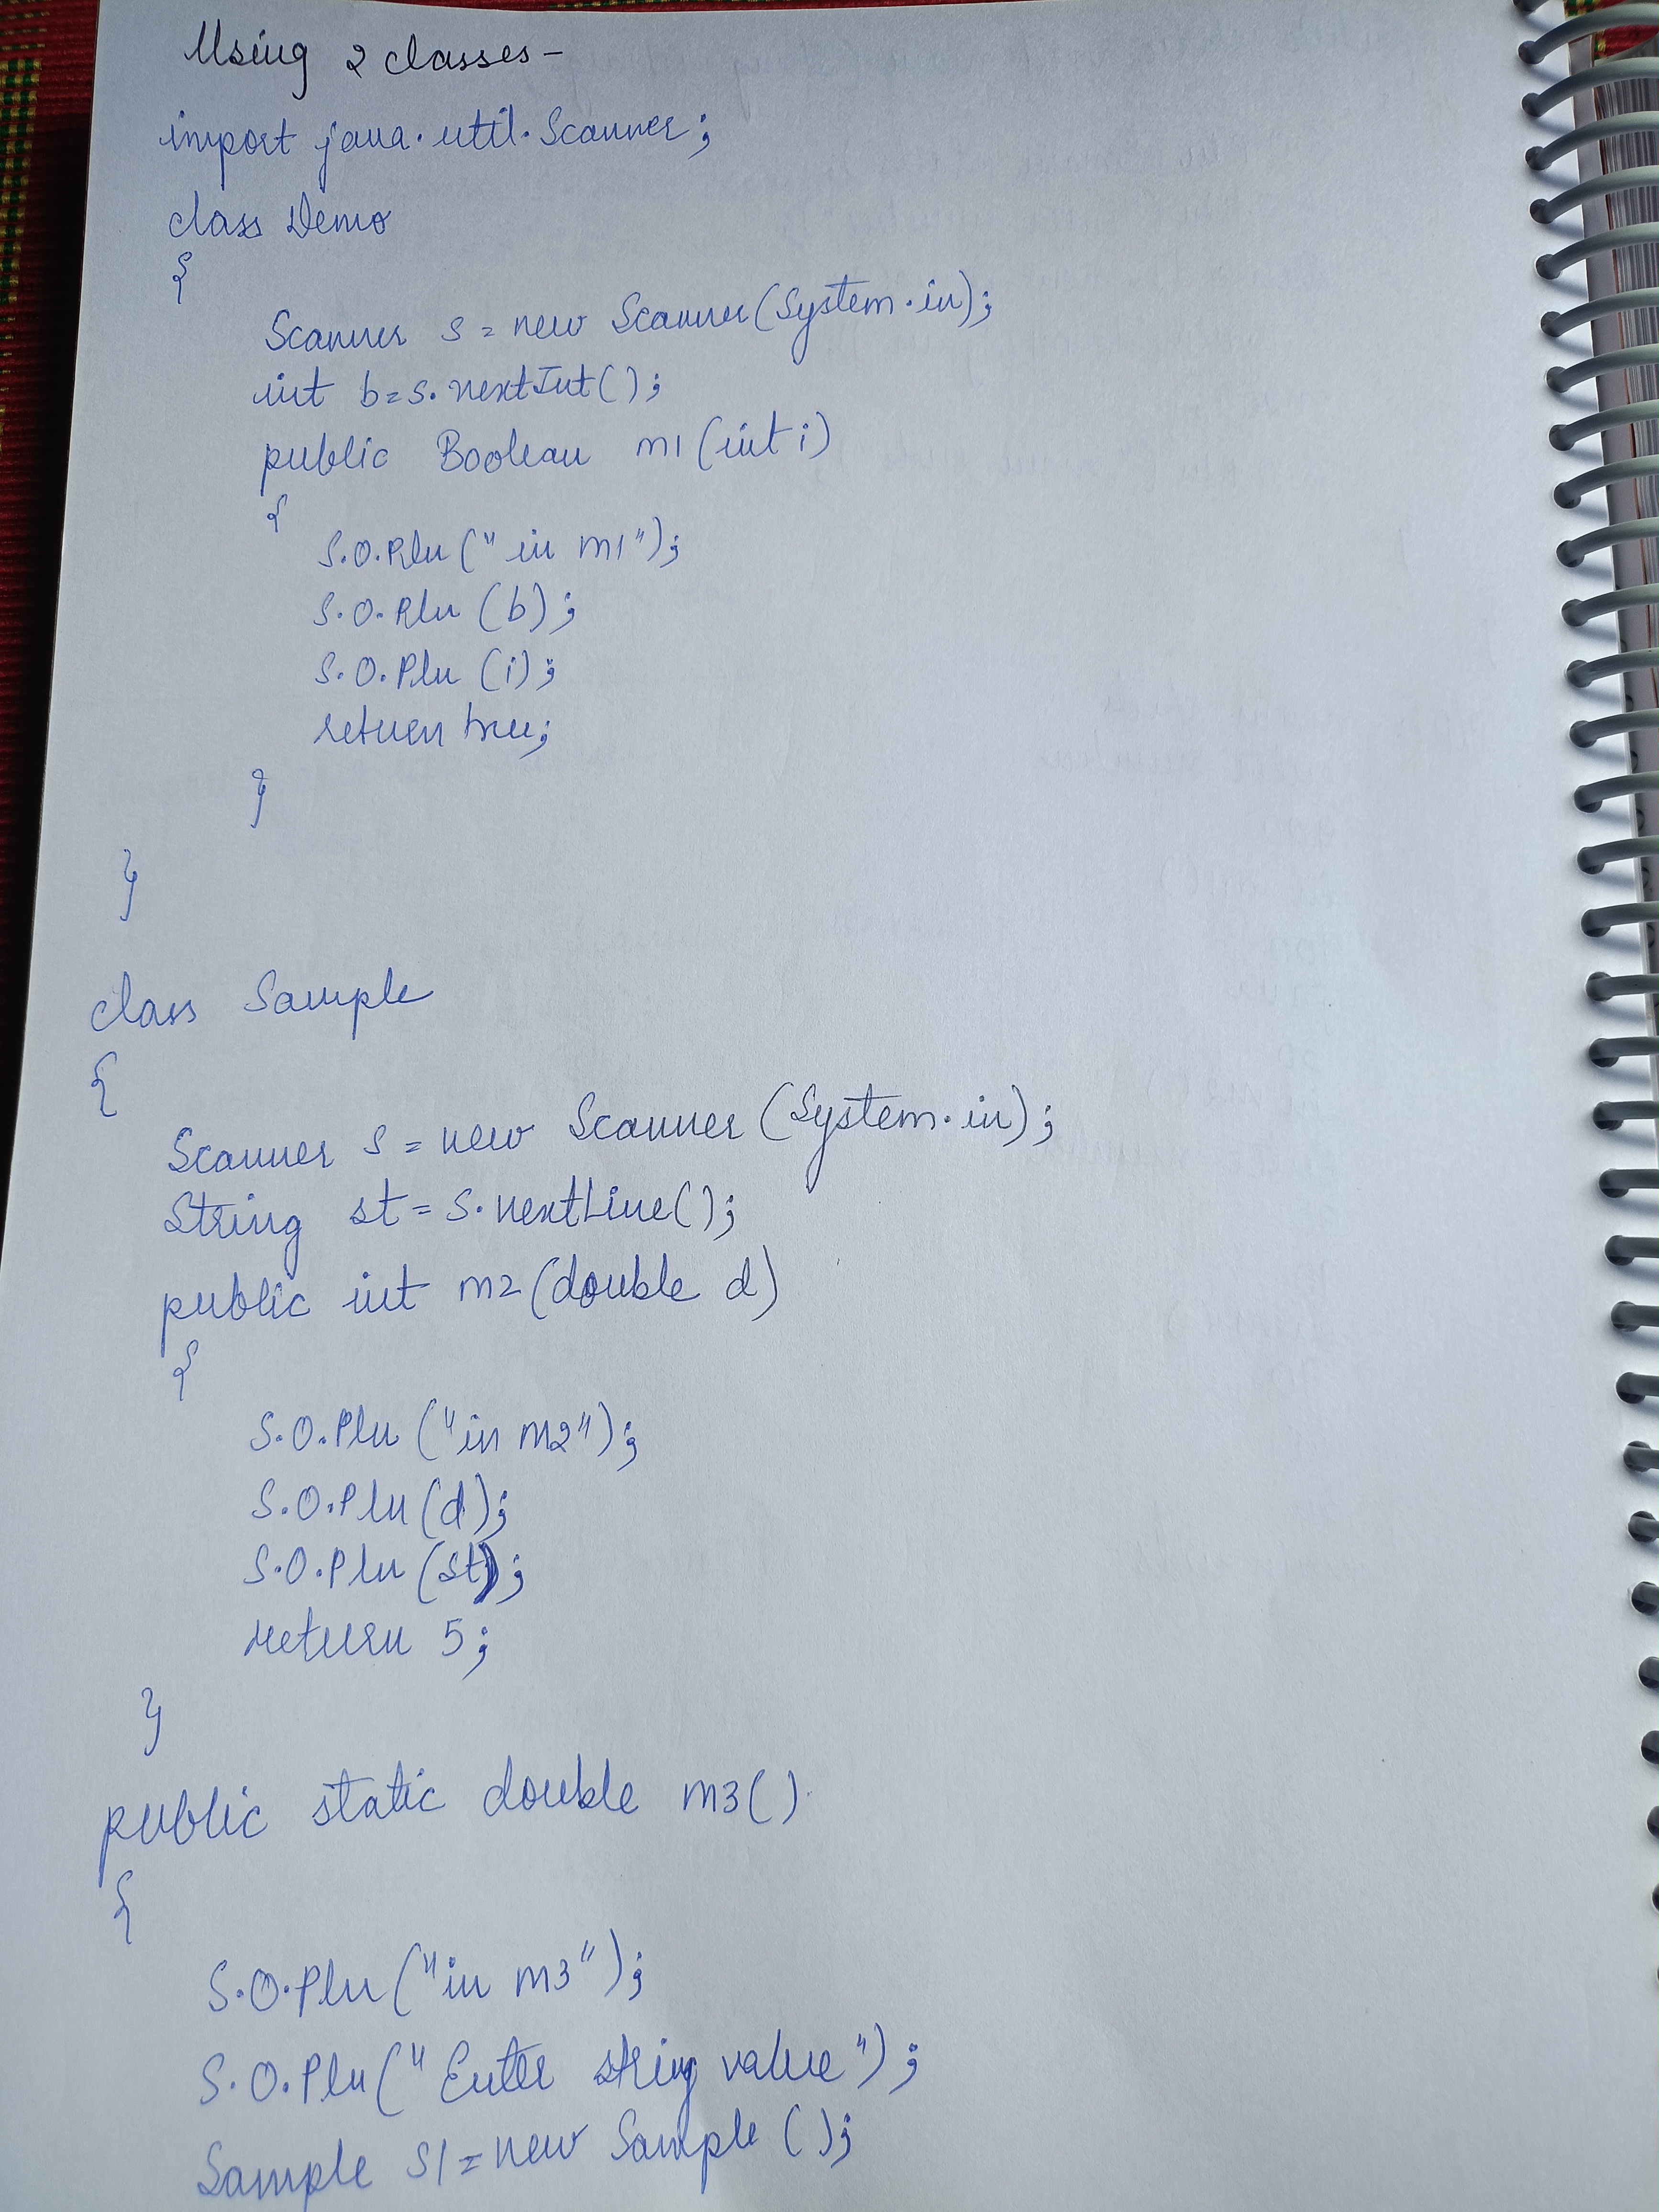 Using 2 classes-
import java.util.Scanner;
class Demo
{
Scanner s = new Scanner(System.in);
int b=s.nextInt();
public Boolean m1(int i)
{
S.O.Pln("in m1");
S.O.Pln(b);
S.O.Pln(i);
return true;
}
}
class Sample
{
Scanner s = new Scanner(System.in);
String st = s.nextLine();
public int m2(double d)
{
S.O.Pln("in m2");
S.O.Pln(d);
S.O.Pln(st);
return 5;
}
public static double m3()
{
S.O.Pln("in m3");
S.O.Pln("Enter string value");
Sample s1=new Sample();